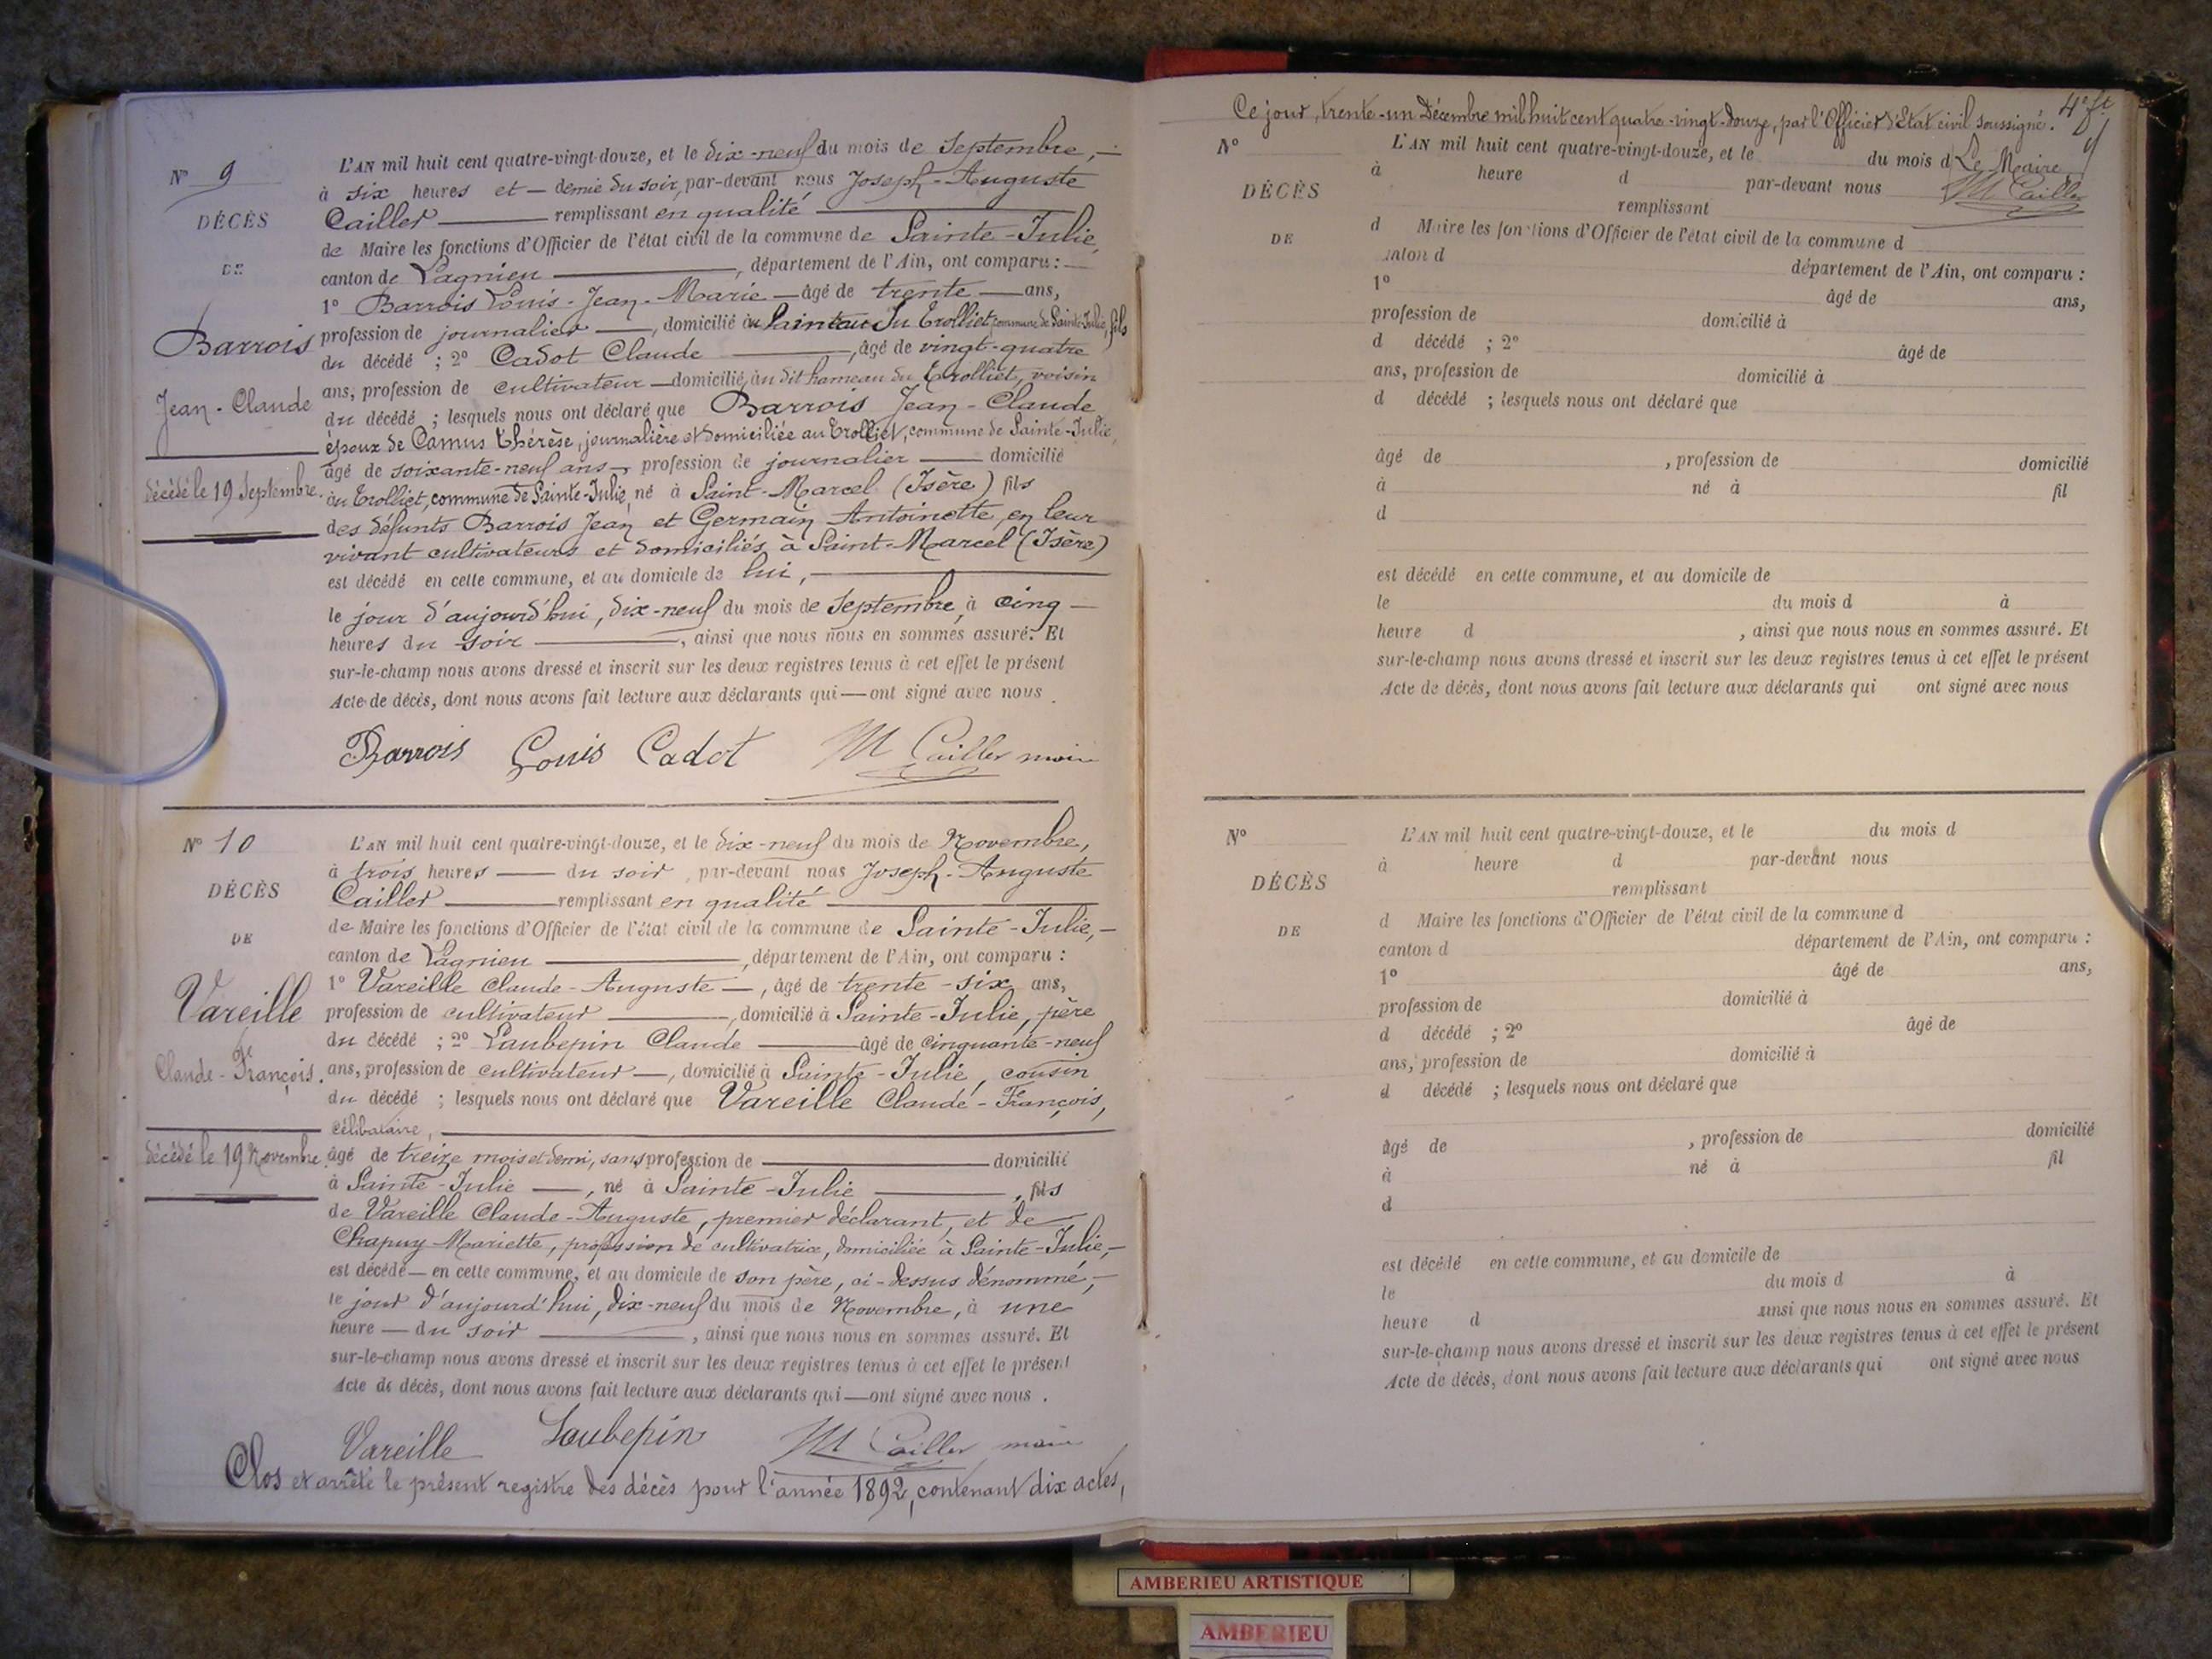 N° 9
DÉCÈS
DE
Barrois
Jean-Claude
décédé le 19 Septembre.
L'AN mil huit cent quatre-vingt-douze, et le dix-neuf du mois de Septembre,
à six heures et demie du soir, par-devant nous Joseph-Auguste
Cailler remplissant en qualité
de Maire les fonctions d'Officier de l'état civil de la commune de Sainte-Julie,
canton de Lagnieu, département de l'Ain, ont comparu :
1° Barrois Louis-Jean-Marie âgé de trente ans,
profession de journalier, domicilié au Trolliet, commune de Sainte-Julie, fils
du décédé ; 2° Cadot Claude, âgé de vingt-quatre
ans, profession de cultivateur domicilié au dit hameau du Trolliet, voisin
du décédé ; lesquels nous ont déclaré que Barrois Jean-Claude
époux de Camus Thérèse, journalière et domiciliée au Trolliet, commune de Sainte-Julie,
âgé de soixante-neuf ans, profession de journalier domicilié
au Trolliet, commune de Sainte-Julie, né à Saint-Marcel (Isère) fils
des défunts Barrois Jean et Germain Antoinette, en leur
vivant cultivateurs et domiciliés à Saint-Marcel (Isère)
est décédé en cette commune, et au domicile de lui,
le jour d'aujourd'hui, dix-neuf du mois de Septembre, à cinq
heures du soir, ainsi que nous nous en sommes assuré. Et
sur-le-champ nous avons dressé et inscrit sur les deux registres tenus à cet effet le présent
Acte de décès, dont nous avons fait lecture aux déclarants qui ont signé avec nous.
Barrois Louis Cadot M Cailler maire
N° 10
DÉCÈS
DE
Vareille
Claude-François.
décédé le 19 Novembre.
L'AN mil huit cent quatre-vingt-douze, et le dix-neuf du mois de Novembre,
à trois heures du soir, par-devant nous Joseph-Auguste
Cailler remplissant en qualité
de Maire les fonctions d'Officier de l'état civil de la commune de Sainte-Julie,
canton de Lagnieu, département de l'Ain, ont comparu :
1° Vareille Claude-Auguste, âgé de trente-six ans,
profession de cultivateur, domicilié à Sainte-Julie, père
du décédé ; 2° Laubepin Claude âgé de cinquante-neuf
ans, profession de cultivateur, domicilié à Sainte-Julie, cousin
du décédé ; lesquels nous ont déclaré que Vareille Claude-François,
célibataire,
âgé de treize mois et demi, sans profession de domicilié
à Sainte-Julie, né à Sainte-Julie, fils
de Vareille Claude-Auguste, premier déclarant, et de
Chapuy Mariette, profession de cultivatrice, domiciliée à Sainte-Julie,
est décédé en cette commune, et au domicile de son père, ci-dessus dénommé,
le jour d'aujourd'hui, dix-neuf du mois de Novembre, à une
heure du soir, ainsi que nous nous en sommes assuré. Et
sur-le-champ nous avons dressé et inscrit sur les deux registres tenus à cet effet le présent
Acte de décès, dont nous avons fait lecture aux déclarants qui ont signé avec nous.
Vareille Laubepin M Cailler maire
Clos et arrêté le présent registre des décès pour l'année 1892, contenant dix actes,
Ce jour, trente-un Décembre mil huit cent quatre-vingt-douze, par l'Officier d'Etat civil soussigné.
4e ft
Le Maire
M Cailler
N°
DÉCÈS
DE
L'AN mil huit cent quatre-vingt-douze, et le du mois d
à heure d par-devant nous
remplissant
d Maire les fonctions d'Officier de l'état civil de la commune d
canton d département de l'Ain, ont comparu :
1° âgé de ans,
profession de domicilié à
d décédé ; 2° âgé de
ans, profession de domicilié à
d décédé ; lesquels nous ont déclaré que
âgé de , profession de domicilié
à né à fil
d
est décédé en cette commune, et au domicile de
le du mois d à
heure d , ainsi que nous nous en sommes assuré. Et
sur-le-champ nous avons dressé et inscrit sur les deux registres tenus à cet effet le présent
Acte de décès, dont nous avons fait lecture aux déclarants qui ont signé avec nous
N°
DÉCÈS
DE
L'AN mil huit cent quatre-vingt-douze, et le du mois d
à heure d par-devant nous
remplissant
d Maire les fonctions d'Officier de l'état civil de la commune d
canton d département de l'Ain, ont comparu :
1° âgé de ans,
profession de domicilié à
d décédé ; 2° âgé de
ans, profession de domicilié à
d décédé ; lesquels nous ont déclaré que
âgé de , profession de domicilié
à né à fil
d
est décédé en cette commune, et au domicile de
le du mois d à
heure d ainsi que nous nous en sommes assuré. Et
sur-le-champ nous avons dressé et inscrit sur les deux registres tenus à cet effet le présent
Acte de décès, dont nous avons fait lecture aux déclarants qui ont signé avec nous
AMBERIEU ARTISTIQUE
AMBERIEU